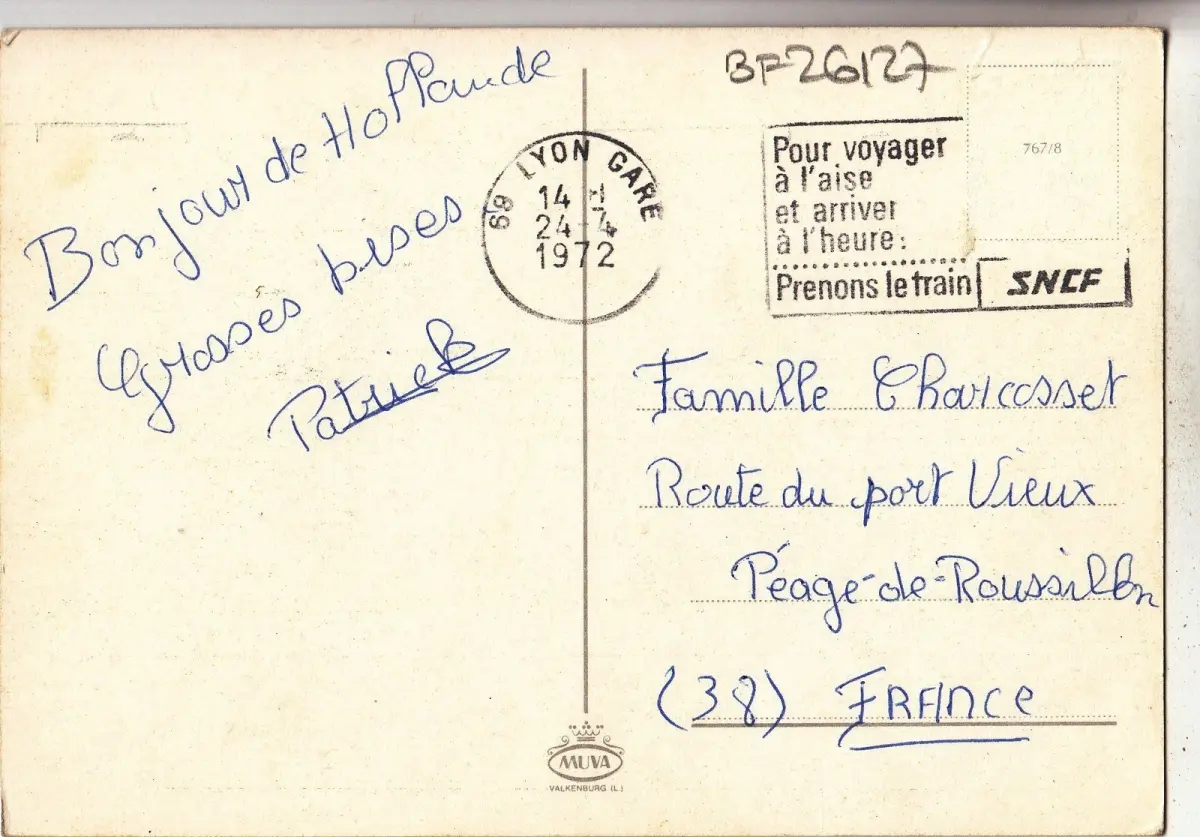 Bonjour de Hollande
Grosses bises
Patrick
BF26127
69 LYON GARE
14 H
24-4
1972
Pour voyager
à l'aise
et arriver
à l'heure:
Prenons le train SNCF
767/8
Famille Charcosset
Route du port Vieux
Péage-de-Roussillon
(38) FRANCE
MUVA
VALKENBURG (L.)